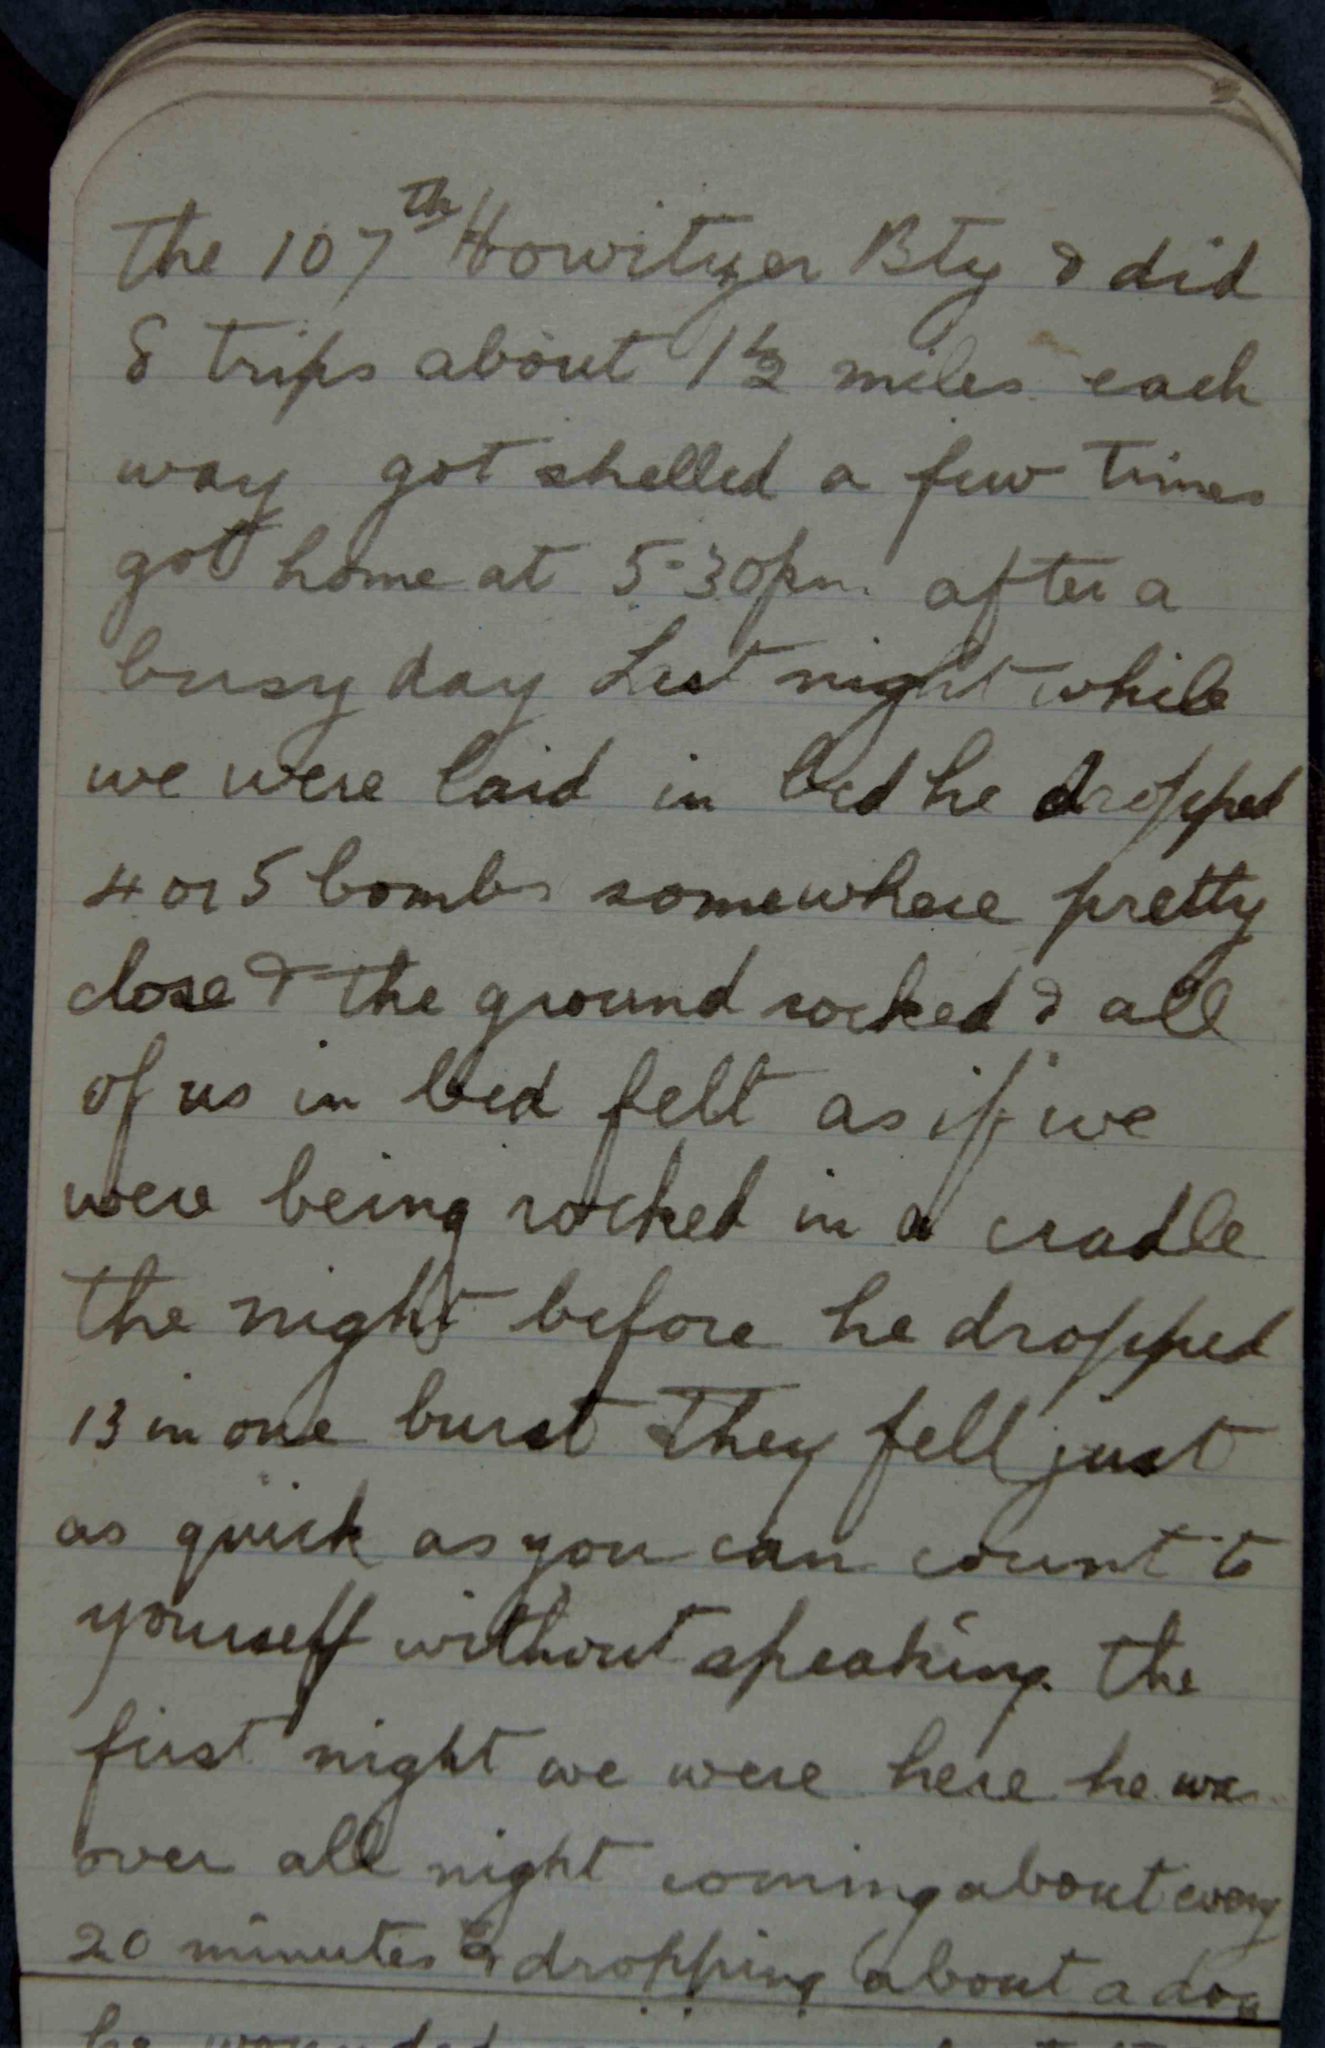 the 107th Howitzer Bty & did
8 trips about 1½ miles each
way got shelled a few times
got home at 5-30pm. after a
busy day Last night while
we were laid in bed he dropped
4 or 5 bombs somewhere pretty
close & the ground rocked & all
of us in bed felt as if we
were being rocked in a cradle
the night before he dropped
13 in one burst They fell just
as quick as you can count to
yourself without speaking. The
first night we were here he was
over all night coming about every
20 minutes & dropping about a doz
be wounded